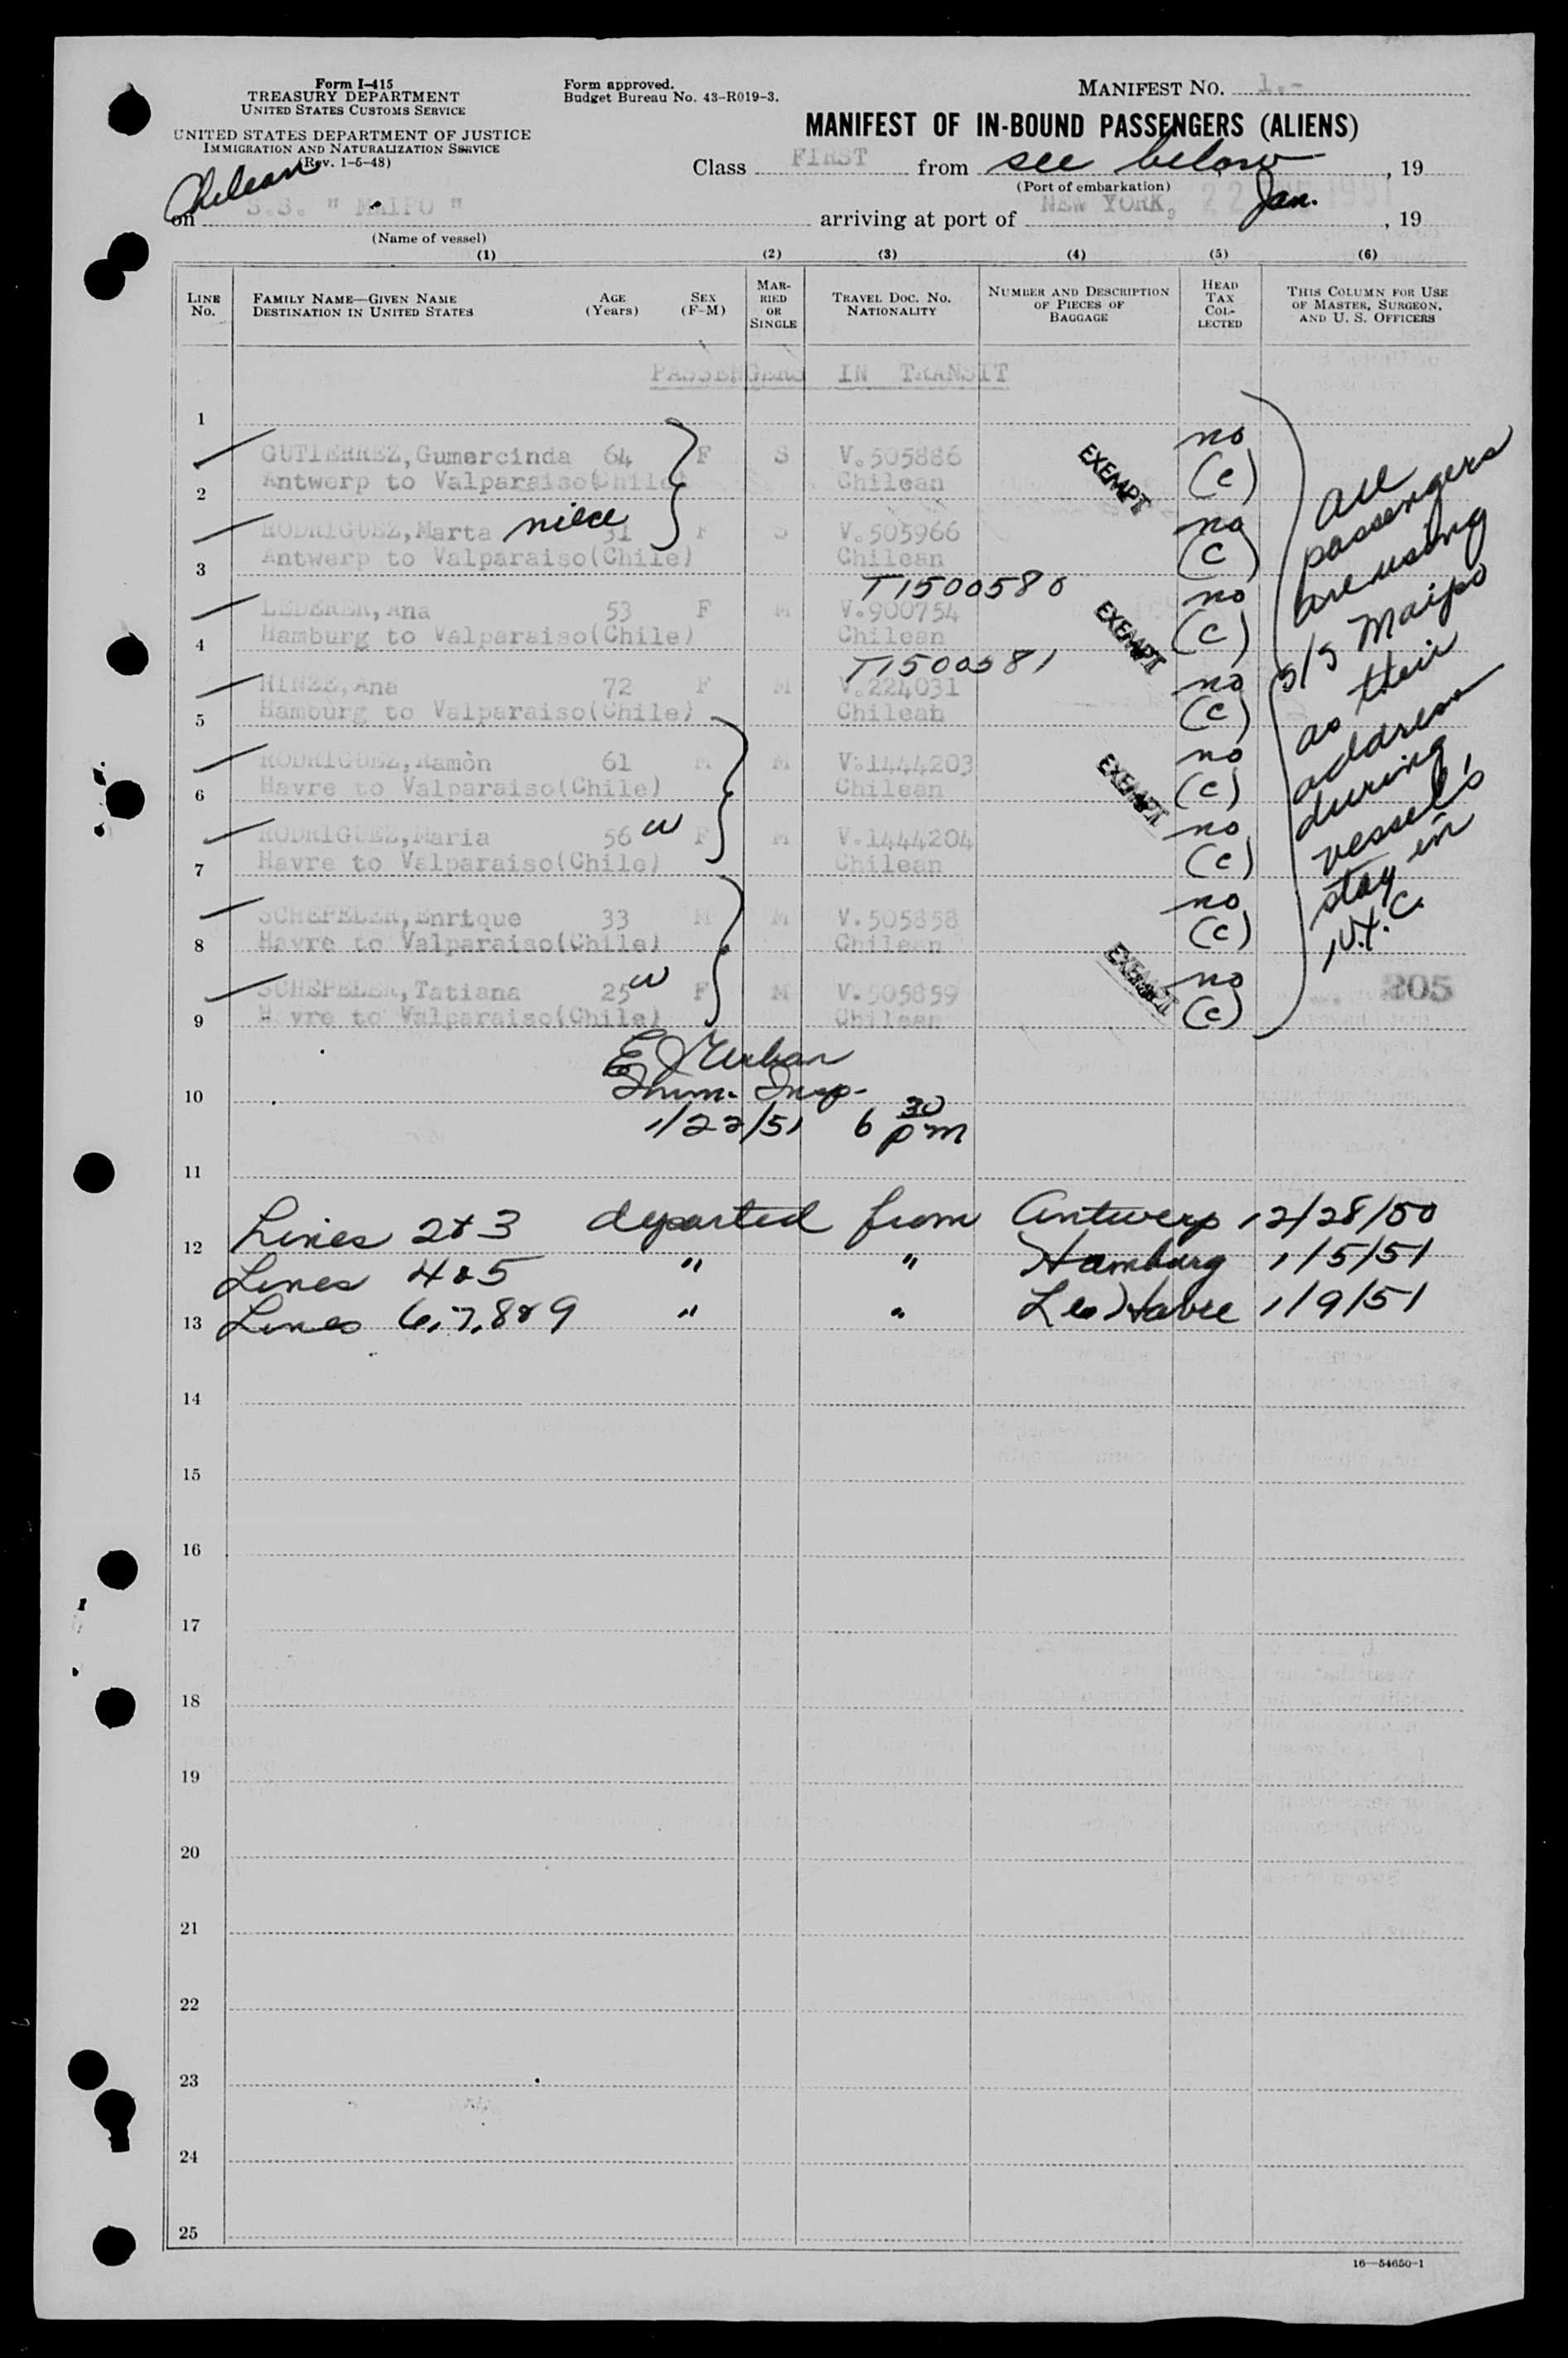 Form I-415
TREASURY DEPARTMENT
UNITED STATES CUSTOMS SERVICE
UNITED STATES DEPARTMENT OF JUSTICE
IMMIGRATION AND NATURALIZATION SERVICE
(Rev. 1-5-48)
Form approved.
Budget Bureau No. 43-R019-3.
MANIFEST NO. 1.-
MANIFEST OF IN-BOUND PASSENGERS (ALIENS)
Class FIRST from see below, 19
(Port of embarkation)
Chilean
on S.S. " MAIPO " arriving at port of NEW YORK, 22 Jan. 1951, 19
(Name of vessel)
(1) (2) (3) (4) (5) (6)
LINE No.
FAMILY NAME—GIVEN NAME DESTINATION IN UNITED STATES
AGE (Years)
SEX (F-M)
MARRIED OR SINGLE
TRAVEL DOC. No. NATIONALITY
NUMBER AND DESCRIPTION OF PIECES OF BAGGAGE
HEAD TAX COLLECTED
THIS COLUMN FOR USE OF MASTER, SURGEON, AND U. S. OFFICERS
PASSENGERS IN TRANSIT
1
GUTIERREZ,Gumercinda 64 F S V.505886 EXEMPT no
2 Antwerp to Valparaiso(Chile) Chilean (c)
RODRIGUEZ,Marta niece 31 F S V.505966 no
3 Antwerp to Valparaiso(Chile) Chilean (c)
T1500580
LEDERER,Ana 53 F M V.900754 EXEMPT no
4 Hamburg to Valparaiso(Chile) Chilean (c)
T1500581
HINZE,Ana 72 F M V.224031 no
5 Hamburg to Valparaiso(Chile) Chilean (c)
RODRIGUEZ,Ramòn 61 M M V.1444203 EXEMPT no
6 Havre to Valparaiso(Chile) Chilean (c)
RODRIGUEZ,Maria 56 w F M V.1444204 no
7 Havre to Valparaiso(Chile) Chilean (c)
SCHEPELER,Enrique 33 M M V.505858 no
8 Havre to Valparaiso(Chile) Chilean (c)
SCHEPELER,Tatiana 25 w F M V.505859 EXEMPT no
9 Havre to Valparaiso(Chile) Chilean (c)
All
passengers
are using
S/S Maipo
as their
address
during
vessel's
stay in
N.Y.C.
205
E J Urban
10 Imm. Insp.
1/22/51 6 30 pm
11
12 Lines 2 & 3 departed from Antwerp 12/28/50
Lines 4 & 5 " " Hamburg 1/5/51
13 Lines 6, 7, 8 & 9 " " Le Havre 1/9/51
14
15
16
17
18
19
20
21
22
23
24
25
16—54650-1